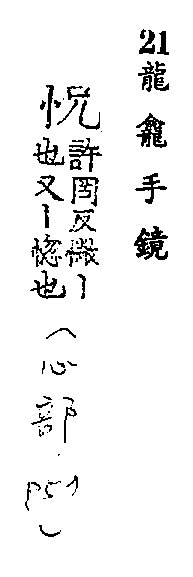 21龍龕手鏡
怳許罔反懺丨
也又丨惚也(心部.P51)